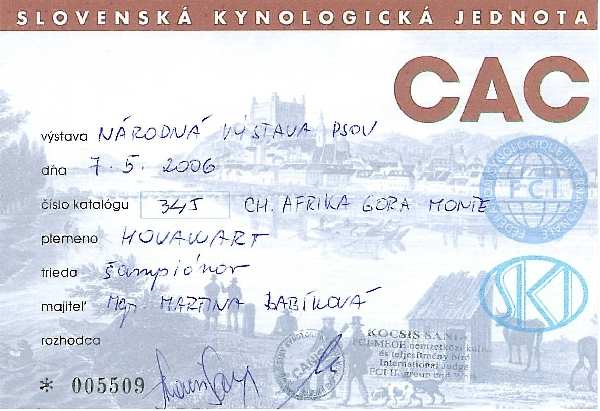 SLOVENSKÁ KYNOLOGICKÁ JEDNOTA
CAC
výstava NÁRODNÁ VÝSTAVA PSOV
dňa 7. 5. 2006
číslo katalógu 345 CH. AFRIKA GORA MONTE
plemeno HOVAWART
trieda šampiónov
majiteľ Mgr. MARTINA BABÍKOVÁ
rozhodca
FCI
SKJ
KOCSIS
FCI-MEOE nemzetközi
és teljesítmény bíró
International Judge
FCI II. group
* 005509